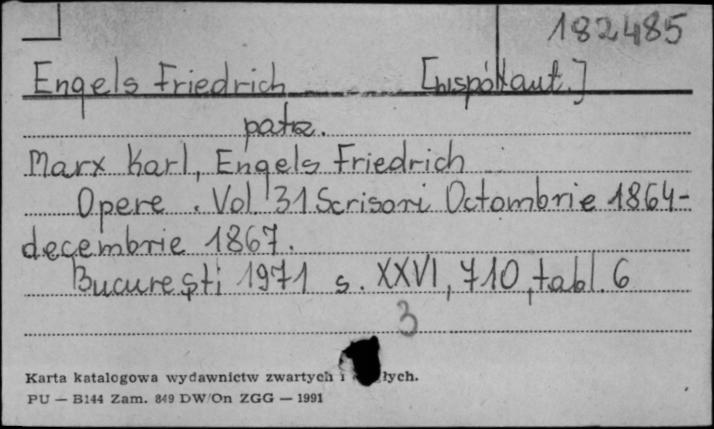 182485
Engels Friedrich [współaut.]
patrz.
Marx Karl, Engels Friedrich
Opere. Vol. 31 Scrisori Octombrie 1864-
decembrie 1867.
București 1971 s. XXVI, 710, tabl. 6
3
Karta katalogowa wydawnictw zwartych i łych.
PU — B144 Zam. 849 DW/On ZGG — 1991